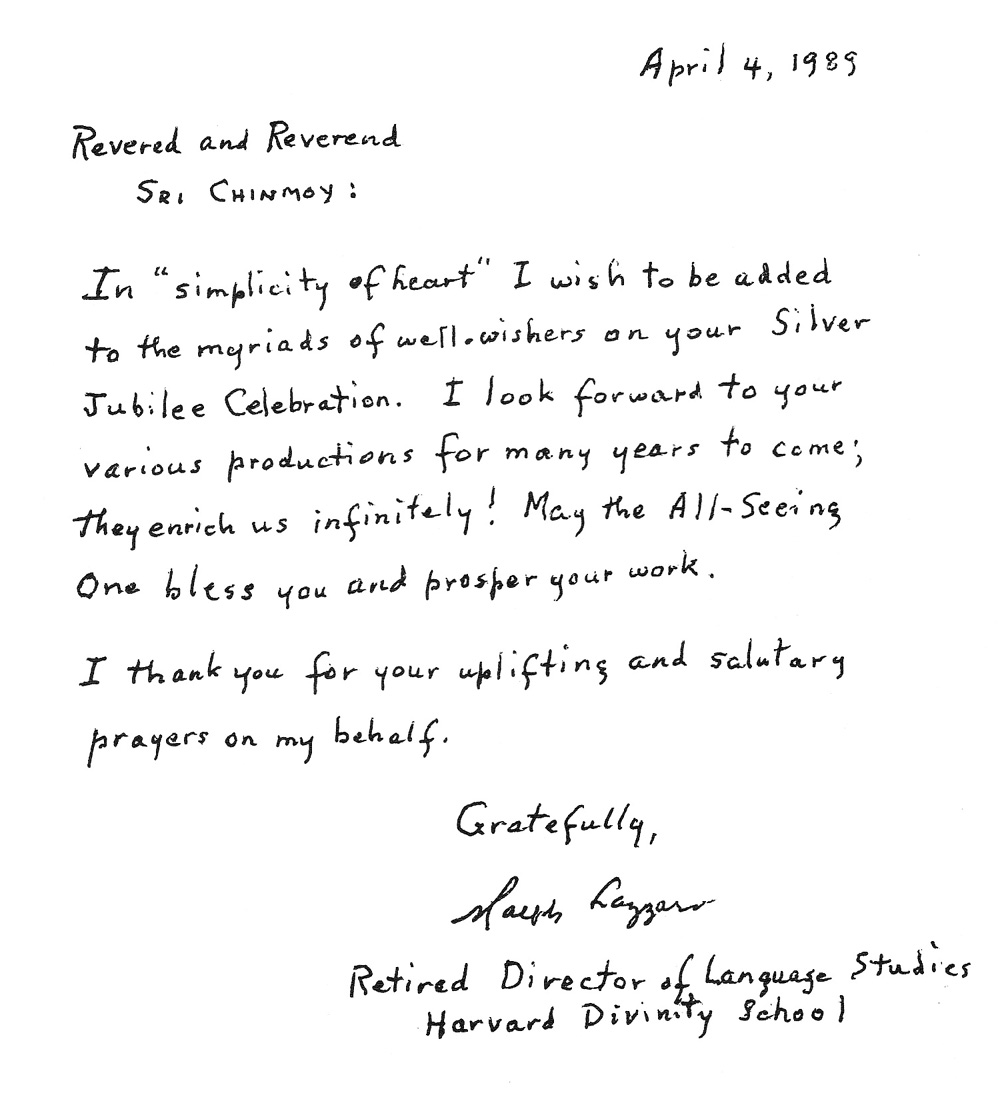 April 4, 1989
Revered and Reverend
SRI CHINMOY:
In "simplicity of heart" I wish to be added
to the myriads of well-wishers on your Silver
Jubilee Celebration. I look forward to your
various productions for many years to come;
they enrich us infinitely! May the All-Seeing
One bless you and prosper your work.
I thank you for your uplifting and salutary
prayers on my behalf.
Gratefully,
Ralph Lazzaro
Retired Director of Language Studies
Harvard Divinity School